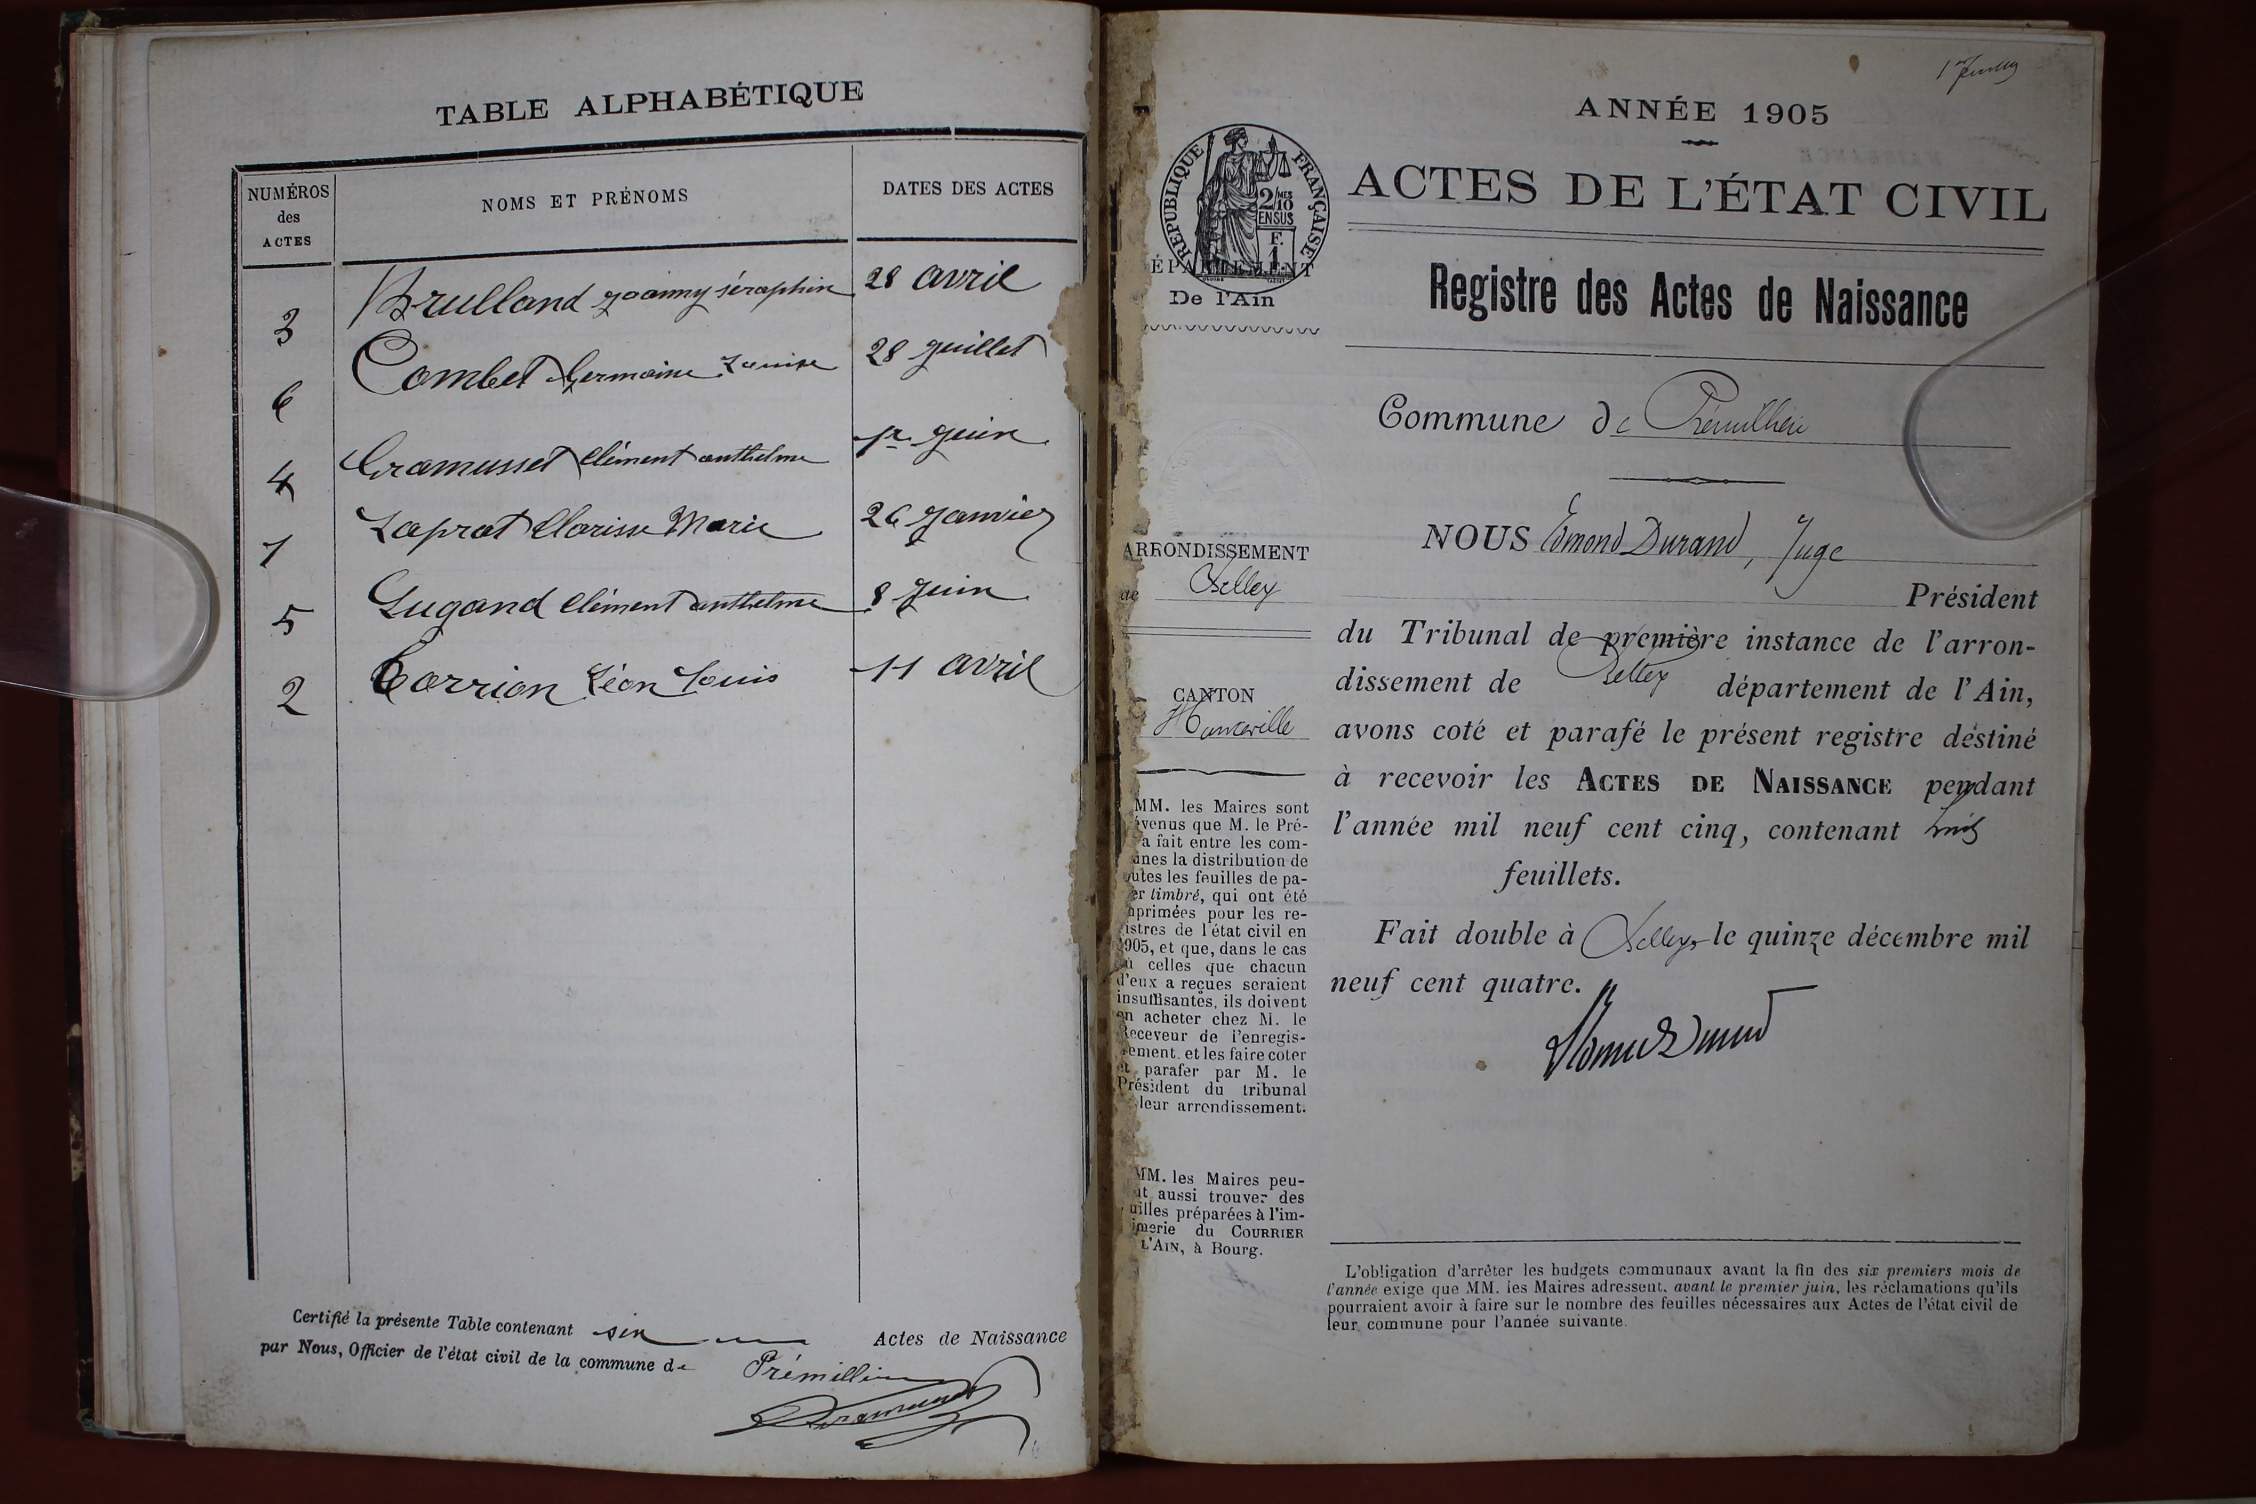 TABLE ALPHABÉTIQUE
NUMÉROS
des
ACTES
NOMS ET PRÉNOMS
DATES DES ACTES
3 Brulland Joanny Séraphin 28 avril
6 Combet Germaine Louise 28 Juillet
4 Gramusset Clément anthelme 1er Juin
1 Laprat Clarisse Marie 26 Janvier
5 Lugand Clément anthelme 8 Juin
2 Carrion Léon Louis 11 avril
Certifié la présente Table contenant six Actes de Naissance
par Nous, Officier de l'état civil de la commune de Prémillieu
1er
ANNÉE 1905
ACTES DE L'ÉTAT CIVIL
RÉPUBLIQUE FRANÇAISE
2/10 MES
EN SUS
1 F.
ÉPARTEMENT
De l'Ain
Registre des Actes de Naissance
Commune de Prémillieu
ARRONDISSEMENT
de Belley
CANTON
Hauteville
NOUS Edmond Durand, Juge
Président
du Tribunal de première instance de l'arron-
dissement de Belley département de l'Ain,
avons coté et parafé le présent registre destiné
à recevoir les ACTES DE NAISSANCE pendant
l'année mil neuf cent cinq, contenant huit
feuillets.
Fait double à Belley, le quinze décembre mil
neuf cent quatre.
MM. les Maires sont
évenus que M. le Pré-
a fait entre les com-
unes la distribution de
outes les feuilles de pa-
er timbré, qui ont été
mprimées pour les re-
istres de l'état civil en
1905, et que, dans le cas
ù celles que chacun
d'eux a reçues seraient
insuffisantes, ils doivent
en acheter chez M. le
Receveur de l'enregis-
rement, et les faire coter
et parafer par M. le
Président du tribunal
leur arrondissement.
MM. les Maires peu-
nt aussi trouver des
uilles préparées à l'im-
imerie du COURRIER
L'AIN, à Bourg.
L'obligation d'arrêter les budgets communaux avant la fin des six premiers mois de
l'année exige que MM. les Maires adressent, avant le premier juin, les réclamations qu'ils
pourraient avoir à faire sur le nombre des feuilles nécessaires aux Actes de l'état civil de
leur commune pour l'année suivante.